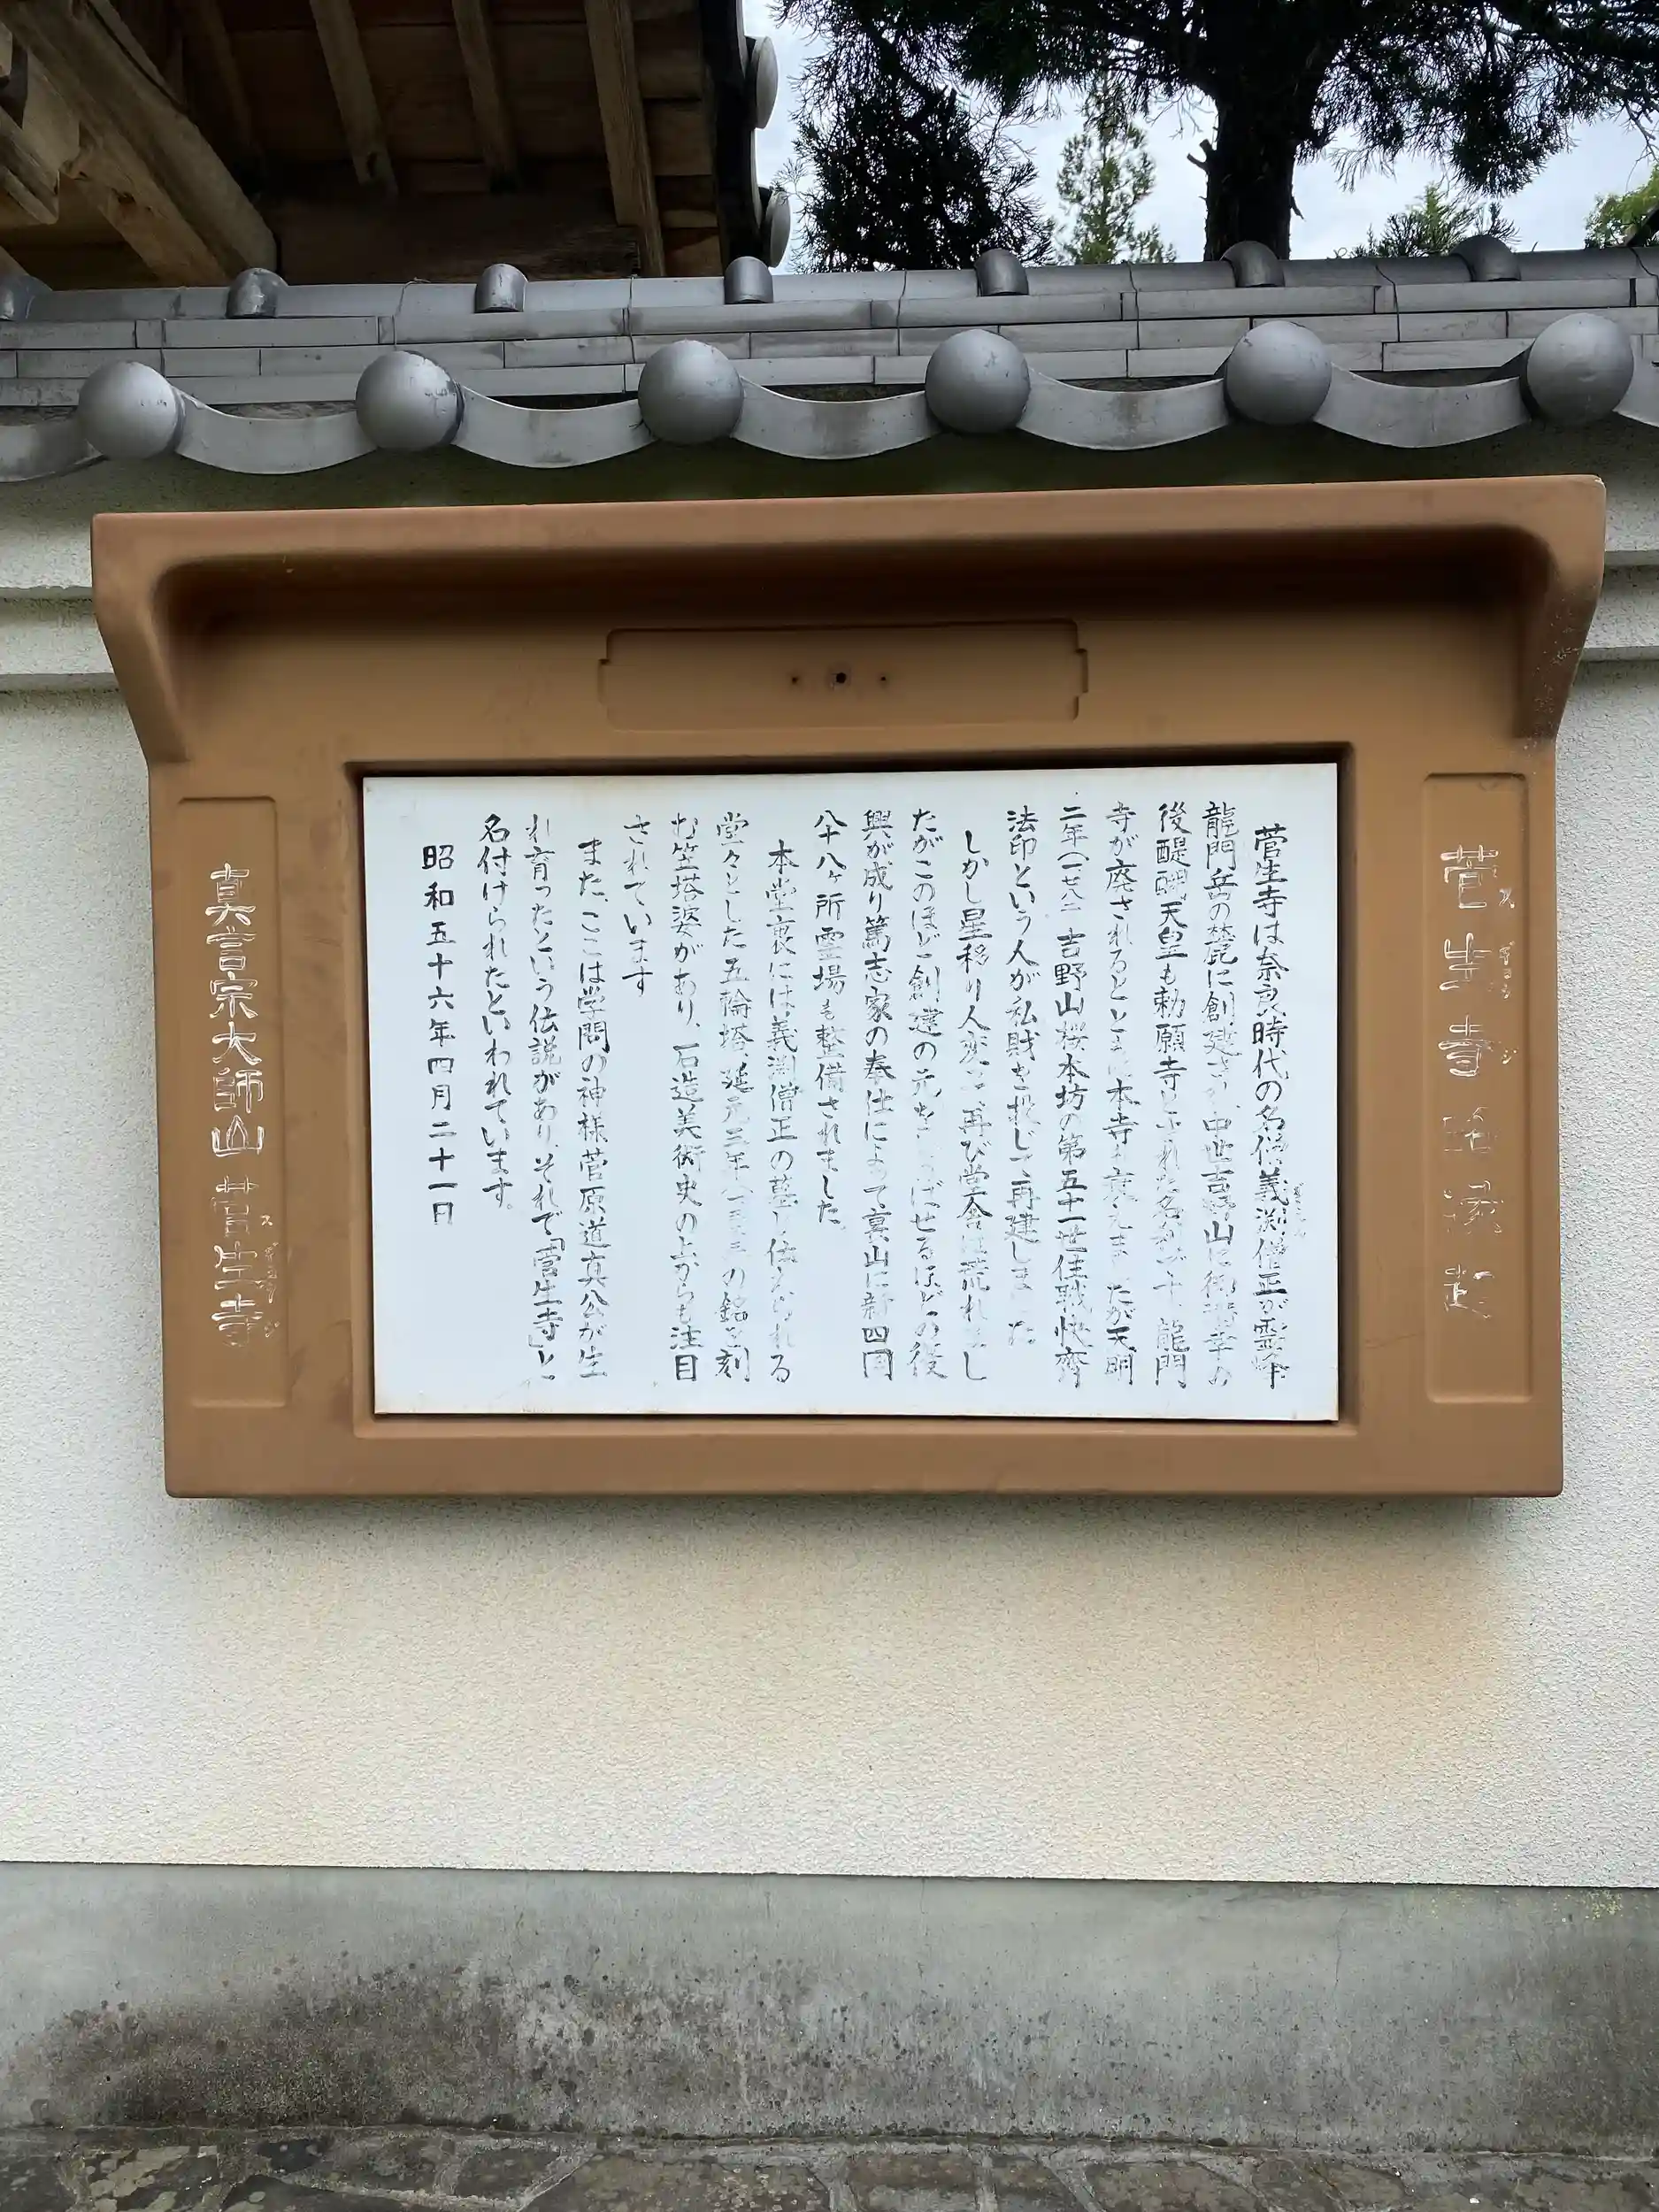 菅生寺
スギョウジ
菅生寺は奈良時代の名僧義渕僧正が霊峰
龍門岳の麓に創建され、中世吉野山に御潜幸の
後醍醐天皇も勅願寺とされた名刹です、龍門
寺が廃されるとともに本寺も衰えましたが天明
二年(一七八二)吉野山桜本坊の第五十一世住職快齊
法印という人が私財を投じて再建しました
しかし星移り人変り、再び堂舎は荒れまし
たがこのほど創建の元を ばせるほどの復
興が成り篤志家の奉仕によって裏山に新四国
八十八ヶ所霊場も整備されました。
本堂裏には義渕僧正の墓と伝えられる
堂々とした五輪塔、延元三年 の銘を刻
む笠塔婆があり、石造美術史の上からも注目
されています
また、ここは学問の神様菅原道真公が生
れ育ったという伝説があり、それで「菅生寺」と
名付けられたといわれています。
昭和五十六年四月二十一日
真言宗大師山菅生寺
スギョウジ